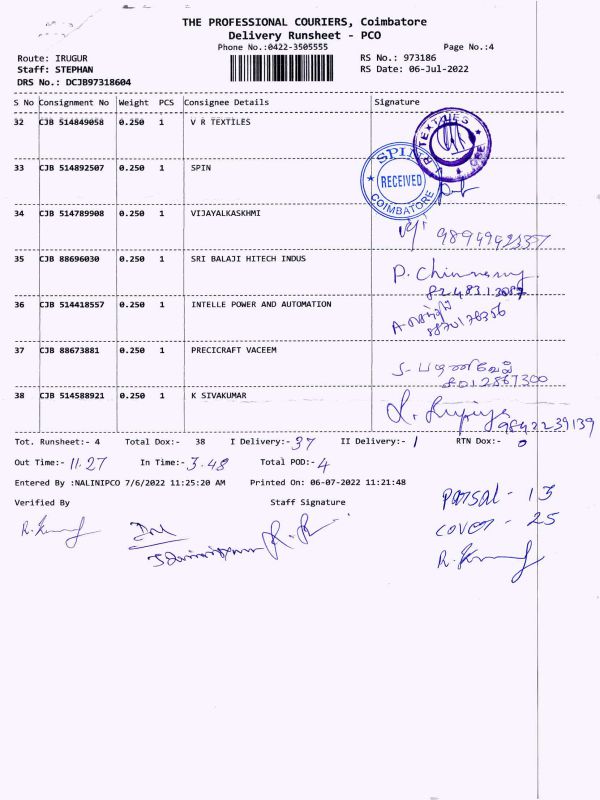 THE PROFESSIONAL COURIERS, Coimbatore
Delivery Runsheet - PCO
Phone No.:0422-3505555 Page No.:4
Route: IRUGUR RS No.: 973186
Staff: STEPHAN RS Date: 06-Jul-2022
DRS No.: DCJB97318604
S No Consignment No Weight PCS Consignee Details Signature
32 CJB 514849058 0.250 1 V R TEXTILES
33 CJB 514892507 0.250 1 SPIN
SPIN RECEIVED COIMBATORE
34 CJB 514789908 0.250 1 VIJAYALKASKHMI
35 CJB 88696030 0.250 1 SRI BALAJI HITECH INDUS
36 CJB 514418557 0.250 1 INTELLE POWER AND AUTOMATION
37 CJB 88673881 0.250 1 PRECICRAFT VACEEM
38 CJB 514588921 0.250 1 K SIVAKUMAR
9842239139
Tot. Runsheet:- 4 Total Dox:- 38 I Delivery:- 37 II Delivery:- 1 RTN Dox:- 0
Out Time:- 11.27 In Time:- 3.48 Total POD:- 4
Entered By :NALINIPCO 7/6/2022 11:25:20 AM Printed On: 06-07-2022 11:21:48
Verified By Staff Signature
Parsal - 13
cover - 25